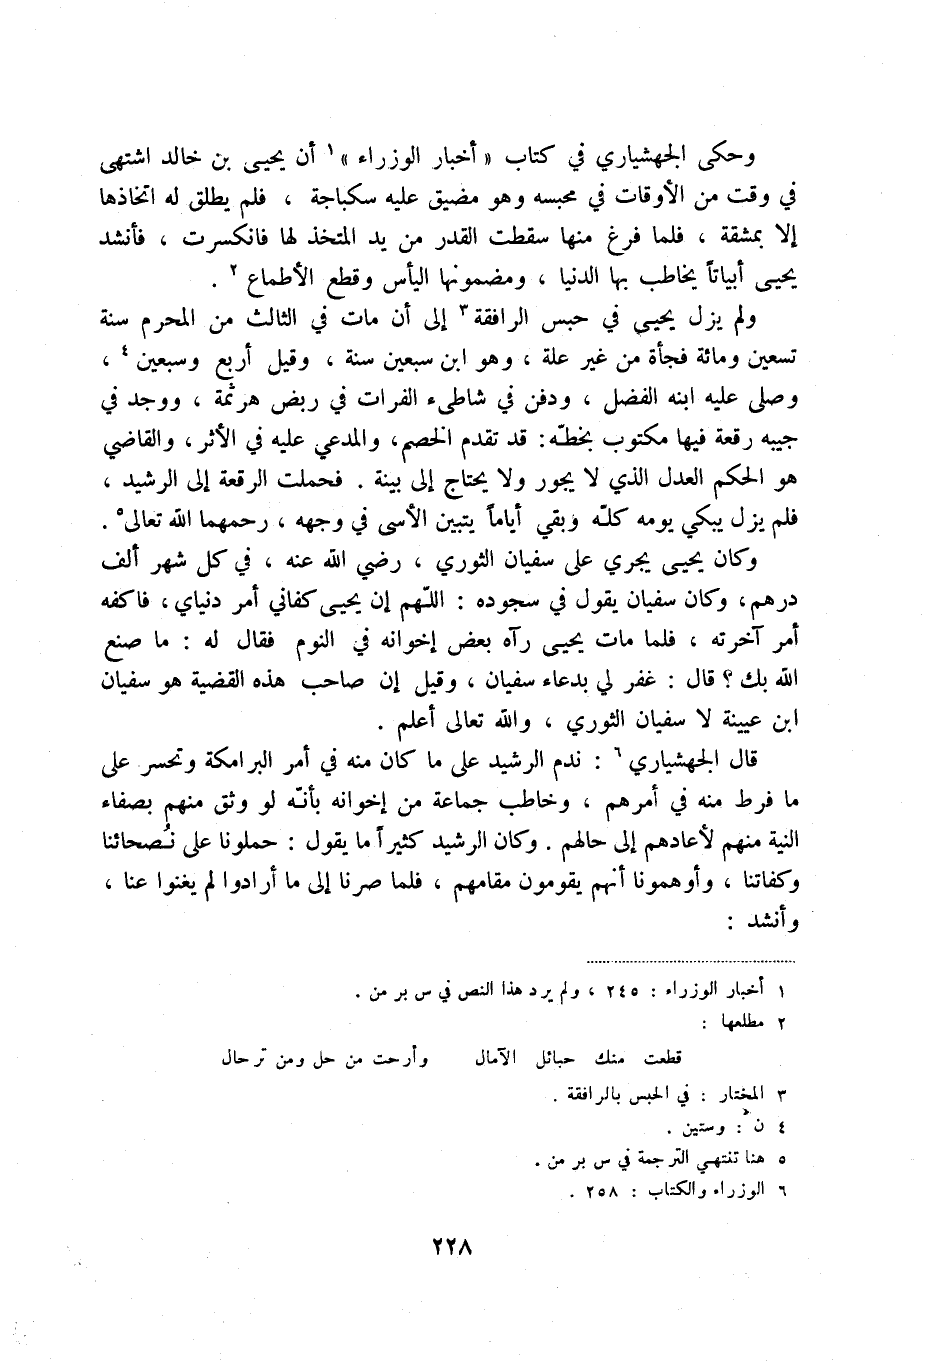 وحكى الجهشياري في كتاب « أخبار الوزراء »١ أن يحيى بن خالد اشتهى
في وقت من الأوقات في محبسه وهو مضيق عليه سكباجة ، فلم يطلق له اتخاذها
إلا بمشقة ، فلما فرغ منها سقطت القدر من يد المتخذ لها فانكسرت ، فأنشد
يحيى أبياتاً يخاطب بها الدنيا ، ومضمونها اليأس وقطع الأطماع ٢ .
ولم يزل يحيى في حبس الرافقة٣ إلى أن مات في الثالث من المحرم سنة
تسعين ومائة فجأة من غير علة ، وهو ابن سبعين سنة ، وقيل أربع وسبعين ٤ ،
وصلى عليه ابنه الفضل ، ودفن في شاطىء الفرات في ربض هرثمة ، ووجد في
جيبه رقعة فيها مكتوب بخطّه : قد تقدم الخصم ، والمدعي عليه في الأثر ، والقاضي
هو الحكم العدل الذي لا يجور ولا يحتاج إلى بينة . فحملت الرقعة إلى الرشيد ،
فلم يزل يبكي يومه كلّه وبقي أياماً يتبين الأسى في وجهه ، رحمهما الله تعالى٥ .
وكان يحيى يجري على سفيان الثوري ، رضي الله عنه ، في كل شهر ألف
درهم ، وكان سفيان يقول في سجوده : اللّهم إن يحيى كفاني أمر دنياي ، فاكفه
أمر آخرته ، فلما مات يحيى رآه بعض إخوانه في النوم فقال له : ما صنع
الله بك ؟ قال : غفر لي بدعاء سفيان ، وقيل إن صاحب هذه القضية هو سفيان
ابن عيينة لا سفيان الثوري ، والله تعالى أعلم .
قال الجهشياري ٦ : ندم الرشيد على ما كان منه في أمر البرامكة وتحسر على
ما فرط منه في أمرهم ، وخاطب جماعة من إخوانه بأنّه لو وثق منهم بصفاء
النية منهم لأعادهم إلى حالهم . وكان الرشيد كثيراً ما يقول : حملونا على نُصحائنا
وكفاتنا ، وأوهمونا أنهم يقومون مقامهم ، فلما صرنا إلى ما أرادوا لم يغنوا عنا ،
وأنشد :
١ أخبار الوزراء : ٢٤٥ ، ولم يرد هذا النص في س بر من .
٢ مطلعها :
قطعت منك حبائل الآمال وأرحت من حل ومن ترحال
٣ المختار : في الحبس بالرافقة .
٤ ن : وستين .
٥ هنا تنتهي الترجمة في س بر من .
٦ الوزراء والكتاب : ٢٥٨ .
٢٢٨